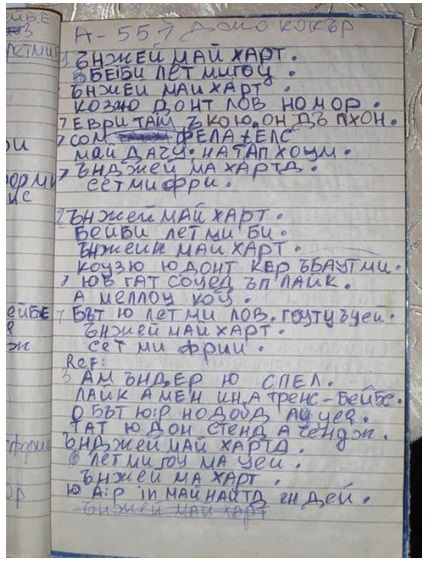 А-557 ДЖО КОКЪР
1 ЪНЖЕЙ МАЙ ХАРТ.
БЕЙБИ ЛЕТ МИ ГОЦ
ЪНЖЕЙ МАЙ ХАРТ.
КОЗЮ ДОНТ ЛОВ НО МОР.
7 ЕВРИ ТАЙМ Ъ КОЮ. ОН ДЪ ПХОН.
7 СОМ ФЕЛА ЕЛС
МАЙ ДАЧУ. НАТ АП ХОУМ.
7 ЪНДЖЕЙ МА ХАРТД.
СЕТ МИ ФРИ.
2 ЪНЖЕЙ МАЙ ХАРТ.
БЕЙБИ ЛЕТ МИ БИ.
ЪНЖЕЙН МАЙ ХАРТ.
КОУЗЮ Ю ДОНТ КЕР ЪБАУТ МИ.
7 ЮВ ГАТ СОУЕД ЪП ЛАЙК.
А МЕЛЛОЦ КОУ.
7 БЪТ Ю ЛЕТ МИ ЛОВ. ГОУТУ ЪЦЕЙ.
ЪНЖЕЙ МАЙ ХАРТ.
СЕТ МИ ФРИИ.
Ref:
5 АМ ЪНДЕР Ю СПЕЛ.
ЛАЙК А МЕН ИН А ТРЕНС-БЕЙБЕ.
О БЪТ Ю:Р НО ДОЙД АЦ ЦЕЙ.
ТАТ Ю ДОН СТЕНД А ЧЕНДЖ.
ЪНДЖЕЙ МАЙ ХАРТД.
ЛЕТ МИ ГОЦ МА ЦЕЙ.
ЪНЖЕЙ МА ХАРТ.
Ю А:Р iп МАЙ НАЙТД ЕН ДЕЙ.
ЪНЖЕЙ МАЙ ХАРТ